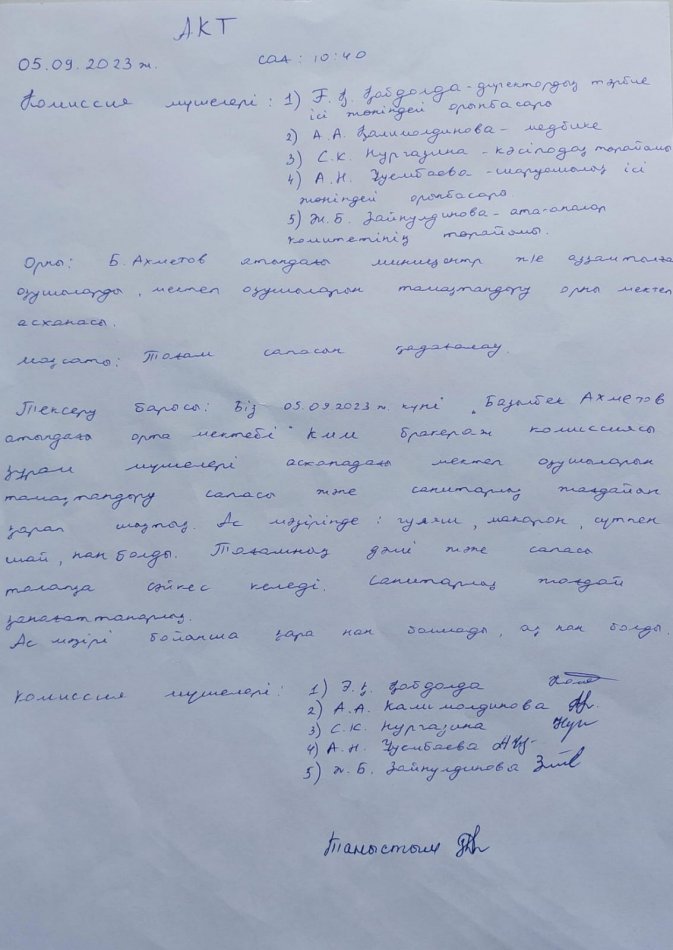 АКТ
05.09.2023 ж. сағ: 10:40
Комиссия мүшелері: 1) Ғ.Қ. Қабдолда - директордың тәрбие
ісі жөніндегі орынбасары
2) А.А. Калимолдинова - медбике
3) С.К. Нургазина - кәсіподақ төрайымы
4) А.Н. Үсембаева - шаруашылық ісі
жөніндегі орынбасары
5) Ж.Б. Зайнулдинова - ата-аналар
комитетінің төрайымы.
Орны: Б. Ахметов атындағы миницентр п/е аз қамтылған
оқушыларды, мектеп оқушыларын тамақтандыру орны мектеп
асханасы.
Мақсаты: Тағам сапасын қадағалау.
Тексеру барысы: Біз 05.09.2023 ж. күні "Базылбек Ахметов
атындағы орта мектебі" КММ бракераж комиссиясы
құрам мүшелері асханадағы мектеп оқушыларын
тамақтандыру сапасы және санитарлық жағдайын
қарап шықтық. Ас мәзірінде: гуляш, макарон, сүтпен
шай, нан болды. Тағамның дәмі және сапасы
талапқа сәйкес келеді. Санитарлық жағдай
қанағаттанарлық.
Ас мәзірі бойынша қара нан болмады, ақ нан болды.
Комиссия мүшелері: 1) Ғ.Қ. Қабдолда
2) А.А. Калимолдинова
3) С.К. Нургазина
4) А.Н. Үсембаева
5) Ж.Б. Зайнулдинова
Таныстым